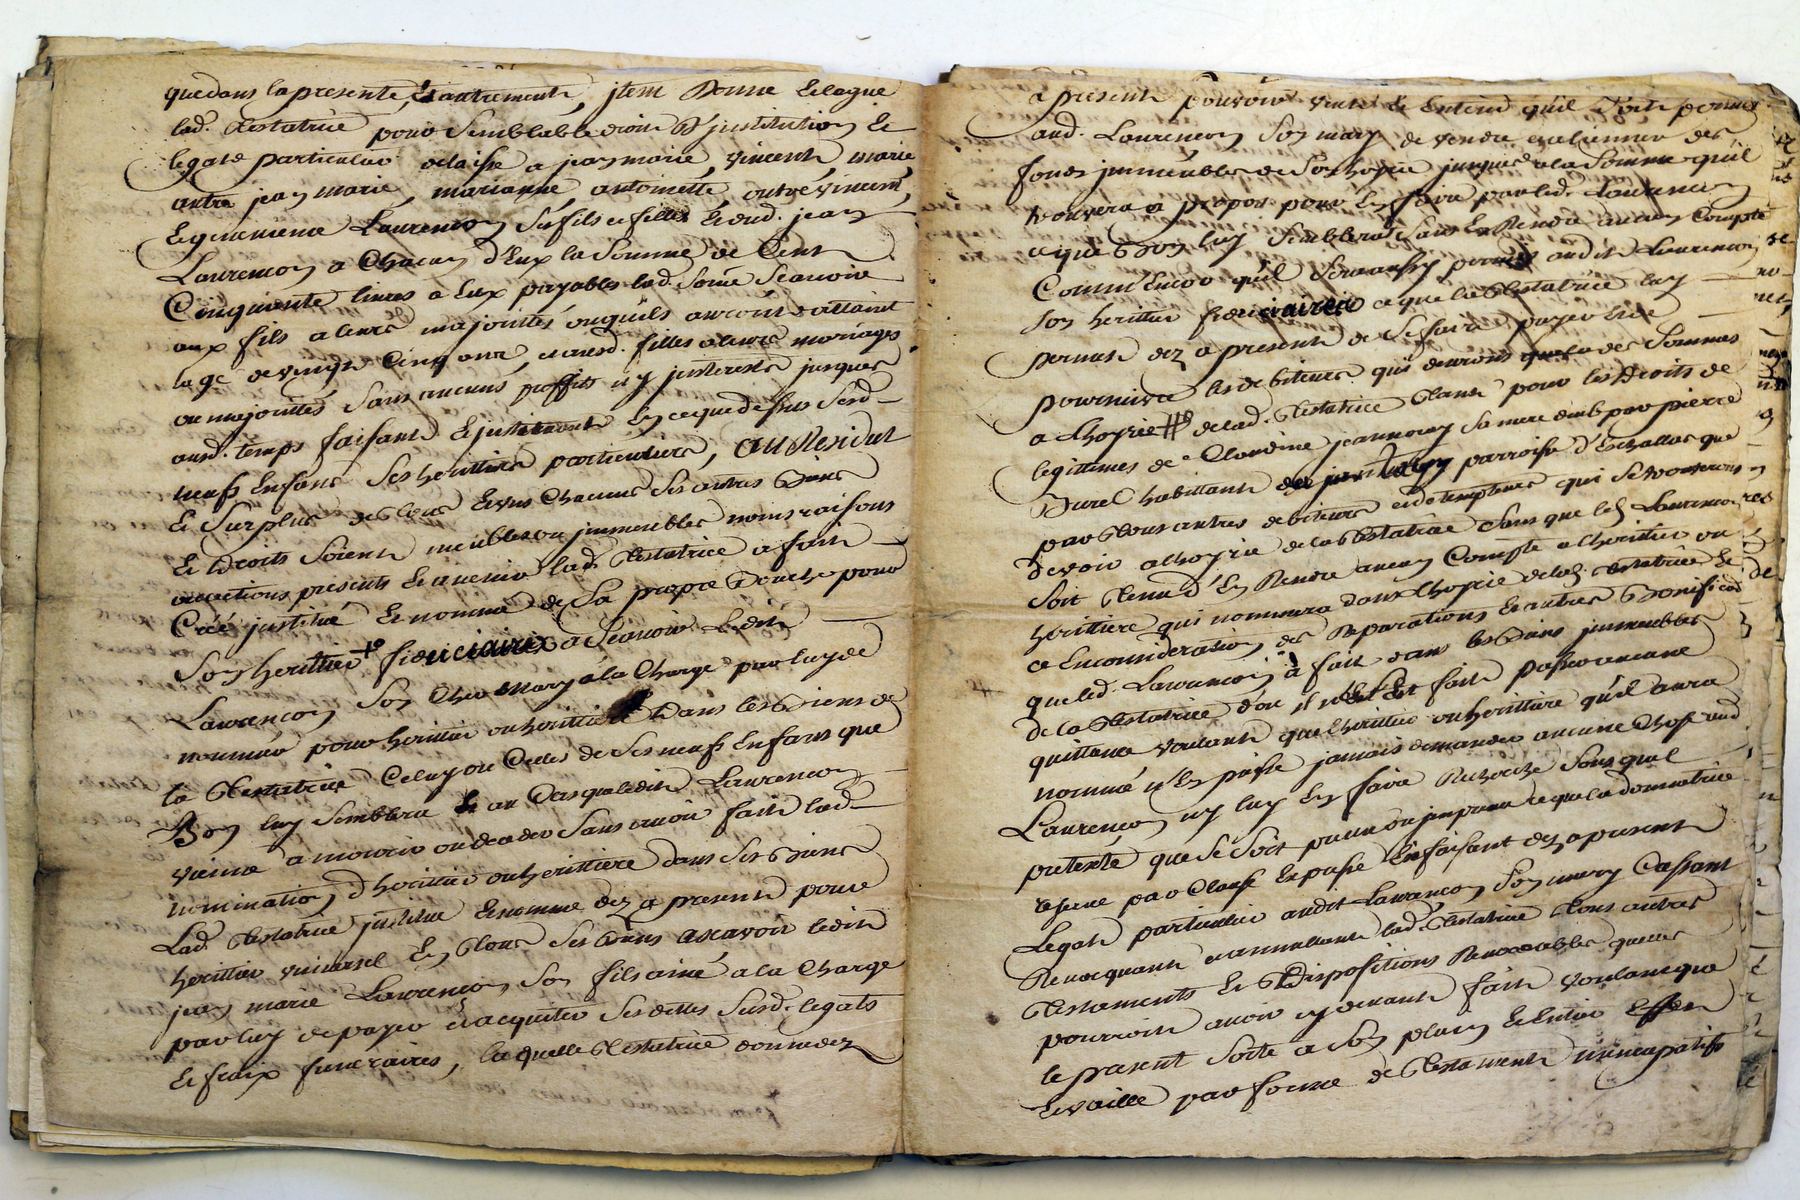 que dans la presente, Et autrement, jtem Donne Et legue
lad. testatrice pour Semblable droit D'justitution Et
legats particulier delaisse a jean marie, vincent, marie
autre jean marie, marianne, antoinette, autre vincent,
Laurencon Ses fils et filles Et aud. jean
Laurencon a Chacun d'Eux la Somme de Cent
Cinquante livres a Eux payables lad. Somme Scauoir
aux fils a leurs majorittés ou qu'ils auront attaint
lage de vingt Cinq ans, et auxd. filles a leurs mariages
ou majorittés Sans aucuns proffits ny jnterests jusques
aud. temps faisant Et justituant En ce que dessus Sesd.
neufs Enfans Ses herittiers particuliers, au Residut
Et Surplus de tous Et vns Chacuns Ses autres Biens
Et Droits Soient meubles ou jmmeubles noms raisons
et actions presents Et auenir lad. testatrice a fait
Créé justitué Et nommé de Sa propre Bouche pour
Son herittier fiduciairix a Scauoir Ledit
Laurencon Son Cher Mary a la Charge par luy de
nommer pour herittier ou herittiere Dans les Biens de
la testatrice Celuy ou Celles de Ses neufs Enfans que
Bon luy Semblera Et au Cas que ledit Laurencon
vienne a mourir ou deceder Sans auoir fait lad.
nomination d'herittier ou herittiere dans Ses Biens
Lad. testatrice justitue Et nomme dez a present pour
herittier vniuersel En tous Ses Biens ascavoir ledit
jean marie Laurencon Son fils ainé a la Charge
par luy de payer et acquiter Ses dettes Susd. legats
Et fraix funeraires, la quelle testatrice donne dez
a present pouvoir veut Et Entend qu'il Soit permis
aud. Laurencon Son mary de vendre et aliener des
fonds jmmeubles de Son hoyrie jusques a la Somme qu'il
trouvera a propos pour En faire par led. Laurencon
ce que Bon luy Semblerat Sans En Rendre aucun Compte
Comm'Encor qu'il Soit aussy permis audit Laurencon
Son herittier fiduciairix ce que la testatrice luy
permet dez a present de Se faire payer Et de
poursuivre les debiteurs qui devront des Sommes
a Lhoyrie de lad. testatrice tant pour les Droits de
legittimes de Claudine jeannoray Sa mere deub par pierre
Burel habittant parroisse d'Echallas que
par tous autres debiteurs qui Se trouveront
devoir a lhoyrie de la testatrice Sans que led. Laurencon
Soit tenu d'En Rendre aucun Compte a lherittier ou
herittiere qui nommera dans lhoyrie de lad. testatrice Et
ce En consideration des Reparations Et autres Bonifications
que led. Laurencon a fait dans les Biens jmmeubles
de la testatrice d'ou il n'Est fait passer aucune
quittance voulant que lherittier ou herittiere qu'il aura
nommé n'En puisse jamais demander aucune Chose aud.
Laurencon ny luy En faire Recherche Sous quel
pretexte que Ce Soit ce que la donnatrice
reserue par Clause Expresse En faisant dez a present
Legats particulier audit Laurencon Son mary Cassant
Reuocquant et annullant lad. testatrice tous autres
testaments Et Dispositions Reuocables quelle
pourroit auoir cy deuant fait voulant que
le present Sorte a Son plain Et Entier Effet
Et vaille par forme de testament nuncupatifs